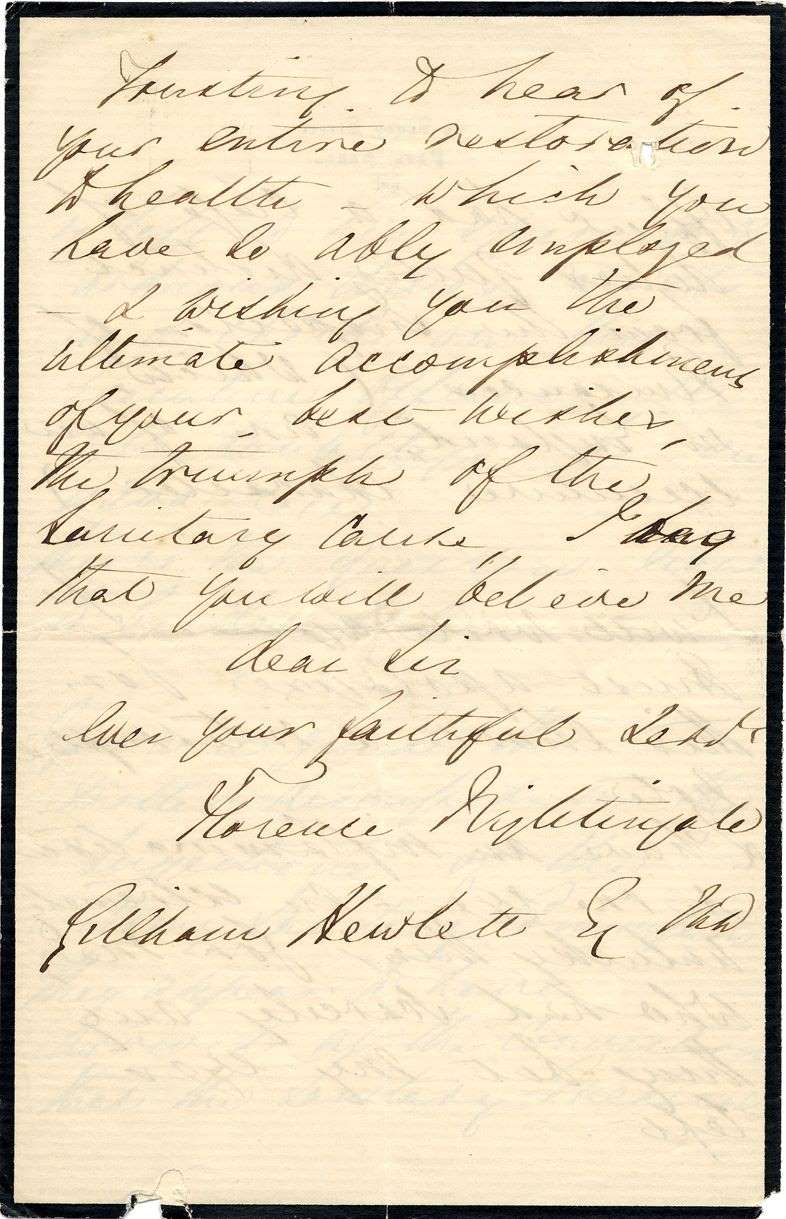 Trusting to hear of
your entire restoration
to health – which you
have so ably employed
– & wishing you the
ultimate accomplishment
of your best wishes,
the triumph of the
Sanitary Cause, I beg
that you will believe me
dear Sir
ever your faithful Servt
Florence Nightingale
Gillham Hewlett Esq MD